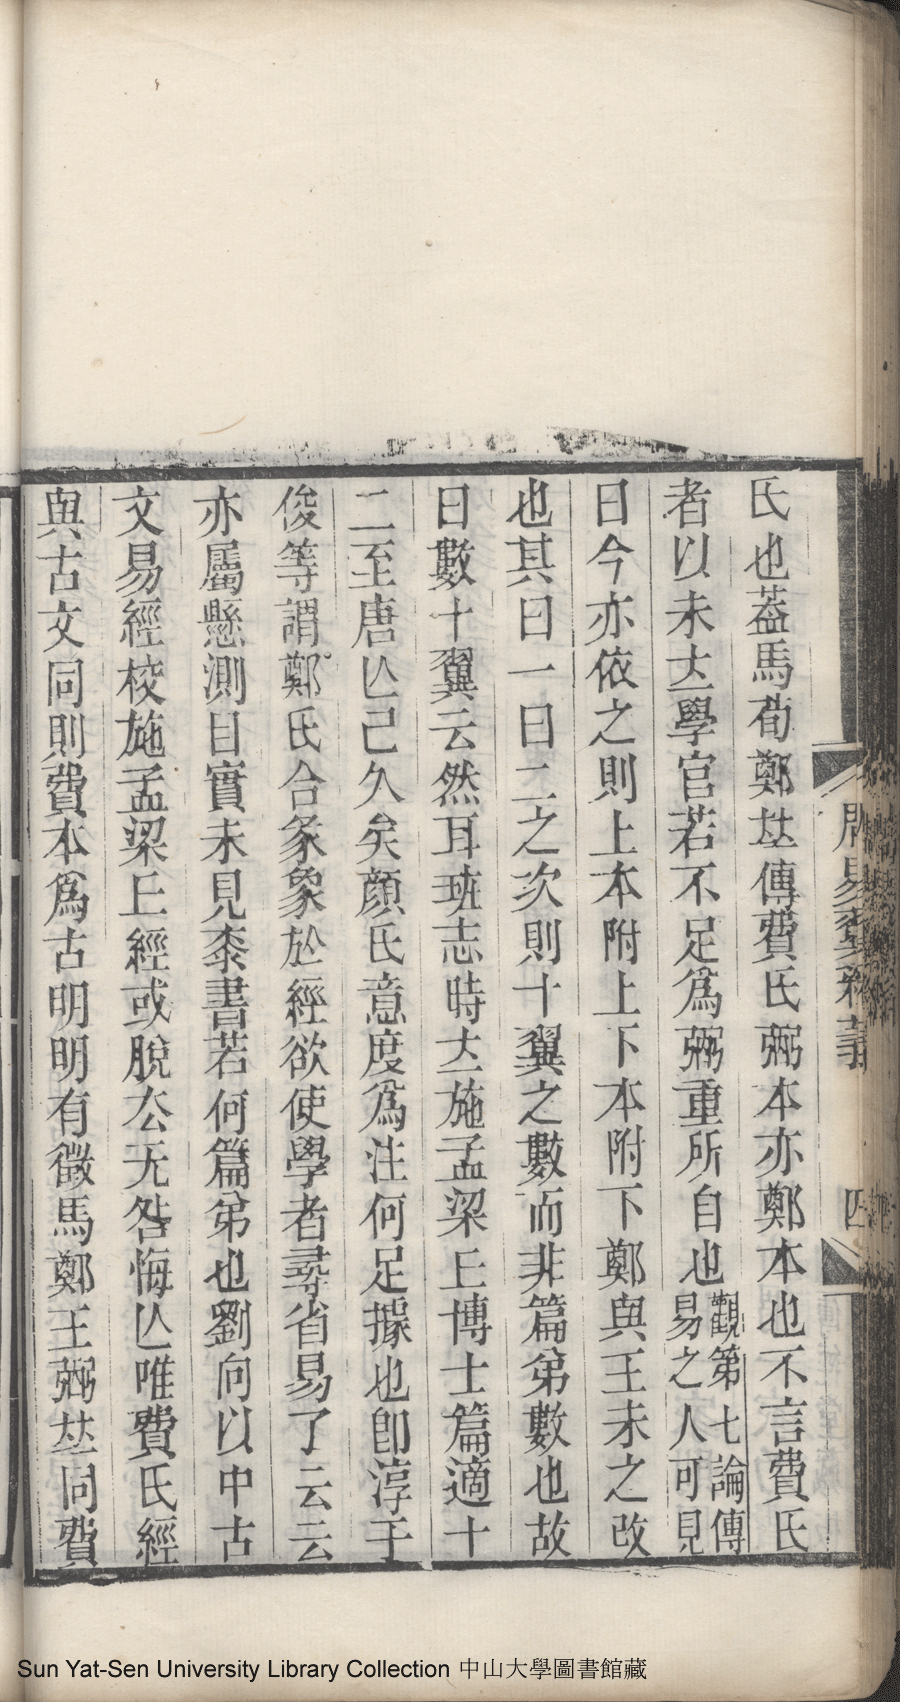 氏也葢馬荀鄭𠀤傳費氏弼本亦鄭本也不言費氏
者以未𡗓學官若不足爲弼重所自也觀第七論傳
易之人可見
曰今亦依之則上本附上下本附下鄭與王未之改
也其曰一曰二之次則十翼之數而非篇弟數也故
曰數十翼云然耳班志時𡗓施孟梁丘博士篇適十
二至唐亾己久矣顔氏意度爲注何足據也卽淳于
俊等謂鄭氏合彖象於經欲使學者尋省易了云云
亦屬懸測目實未見桼書若何篇弟也劉向以中古
文易經校施孟梁丘經或脫厺无咎悔亾唯費氏經
與古文同則費本爲古明明有徵馬鄭王弼𠀤同費
周易
四
Sun Yat-Sen University Library Collection 中山大學圖書館藏